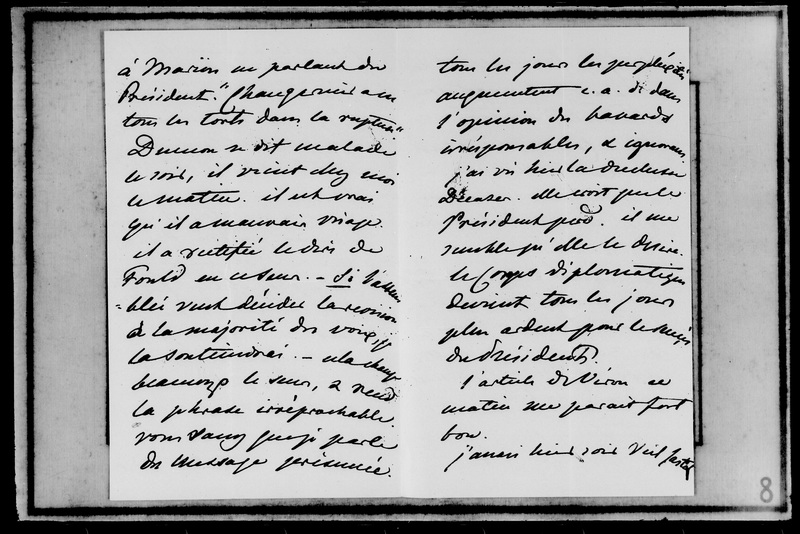 à Marion en parlant du
Président. "Changarnier a eu
tous les torts dans la rupture"
Dumon se dit malade
ce soir, il vient chez moi
le matin. il est vrai
qu'il a mauvais visage.
il a rectifié le dire de
Fould en ce sens. – Si l'assem
=blée veut décider la revision
à la majorité des voix, je
la soutiendrai. – cela change
beaucoup le sens, & rend
la phrase irréprochable.
vous savez que je parle
du message présumé.
tous les jours les perplexités
augmentent c. a. d. dans
l'opinion des bavards
irresponsables, & ignorans
j'ai vu hier la duchesse
Decazes. elle croit que le
Président perd. il me
semble qu'elle le désire.
le Corps diplomatique
devient tous les jours
plus ardent pour le succès
du Président.
l'article de Véron ce
matin me parait fort
bon.
j'aurai hier soir Viel
8